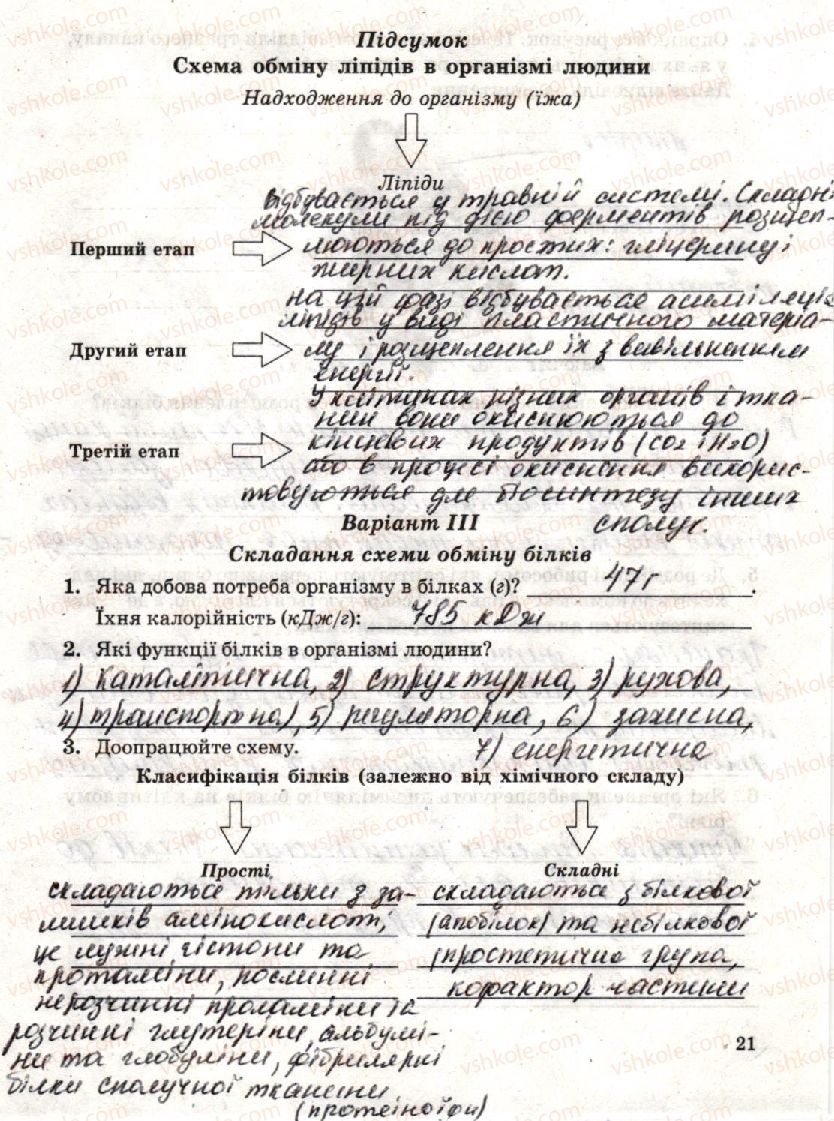 Підсумок
Схема обміну ліпідів в організмі людини
Надходження до організму (їжа)
Ліпіди
Відбувається у травній системі. Складні
молекули під дією ферментів розщеп-
Перший етап
люються до простих: гліцерину і
жирних кислот.
на цій фазі відбувається асиміляція
ліпідів у виді пластичного матеріа-
Другий етап
лу і розщеплення їх з вивільненням
енергії.
У клітинах різних органів і тка-
нин вони окиснюються до
Третій етап
кінцевих продуктів (CO2 і H2O)
або в процесі окиснання викорис-
товуються для біосинтезу інших
сполук.
Варіант III
Складання схеми обміну білків
1. Яка добова потреба організму в білках (г)? 47 г.
Їхня калорійність (кДж/г): 785 кДж
2. Які функції білків в організмі людини?
1) каталітична, 2) структурна, 3) рухова,
4) транспортна, 5) регуляторна, 6) захисна,
3. Доопрацюйте схему. 7) енергетична
Класифікація білків (залежно від хімічного складу)
Прості
складаються тільки з за-
лишків амінокислот;
це лужні гістони та
протаміни, рослинні
нерозчинні проламіни та
розчинні глутеріни, альбумі-
ни та глобуліни, фібрилярні
білки сполучної тканини
(протеіноїди)
Складні
складаються з білкової
(апобілок) та небілкової
(простетична група,
кофактор частини
21